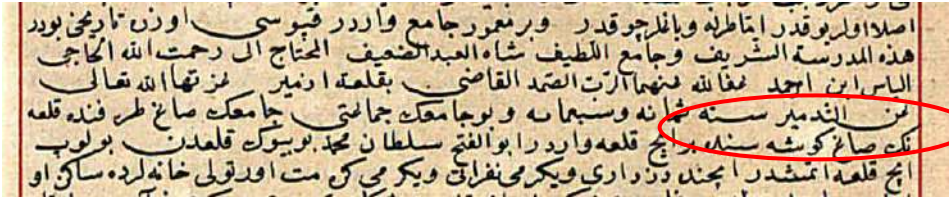 اصلا اولر یوقدر اما طرله و باغلر چوقدر و بر معمور جامع واردر قپوسی اوزره تاریخی بودر
هذه المدرسة الشریف وجامع اللطیف شاه العبد الضعیف المحتاج الی رحمت الله الحاجی
الیاس ابن احمد عفا الله عنهما الرب الصمد القاضی بقلعه ازنمیر عمرتها الله تعالی
عن التدمیر سنه ثمانه وسبعمایه و بو جامعك جماعتی جامعك صاغ طرفنده قلعه
نك صاغ کوشه سنده بر ایچ قلعه واردر ابو الفتح سلطان محمد بو بیوك قلعه دن بولوب
ایچ قلعه ایتمشدر ایچنده دزداری ویکرمی نفراتی ویکرمی خانه لرده ساکن او